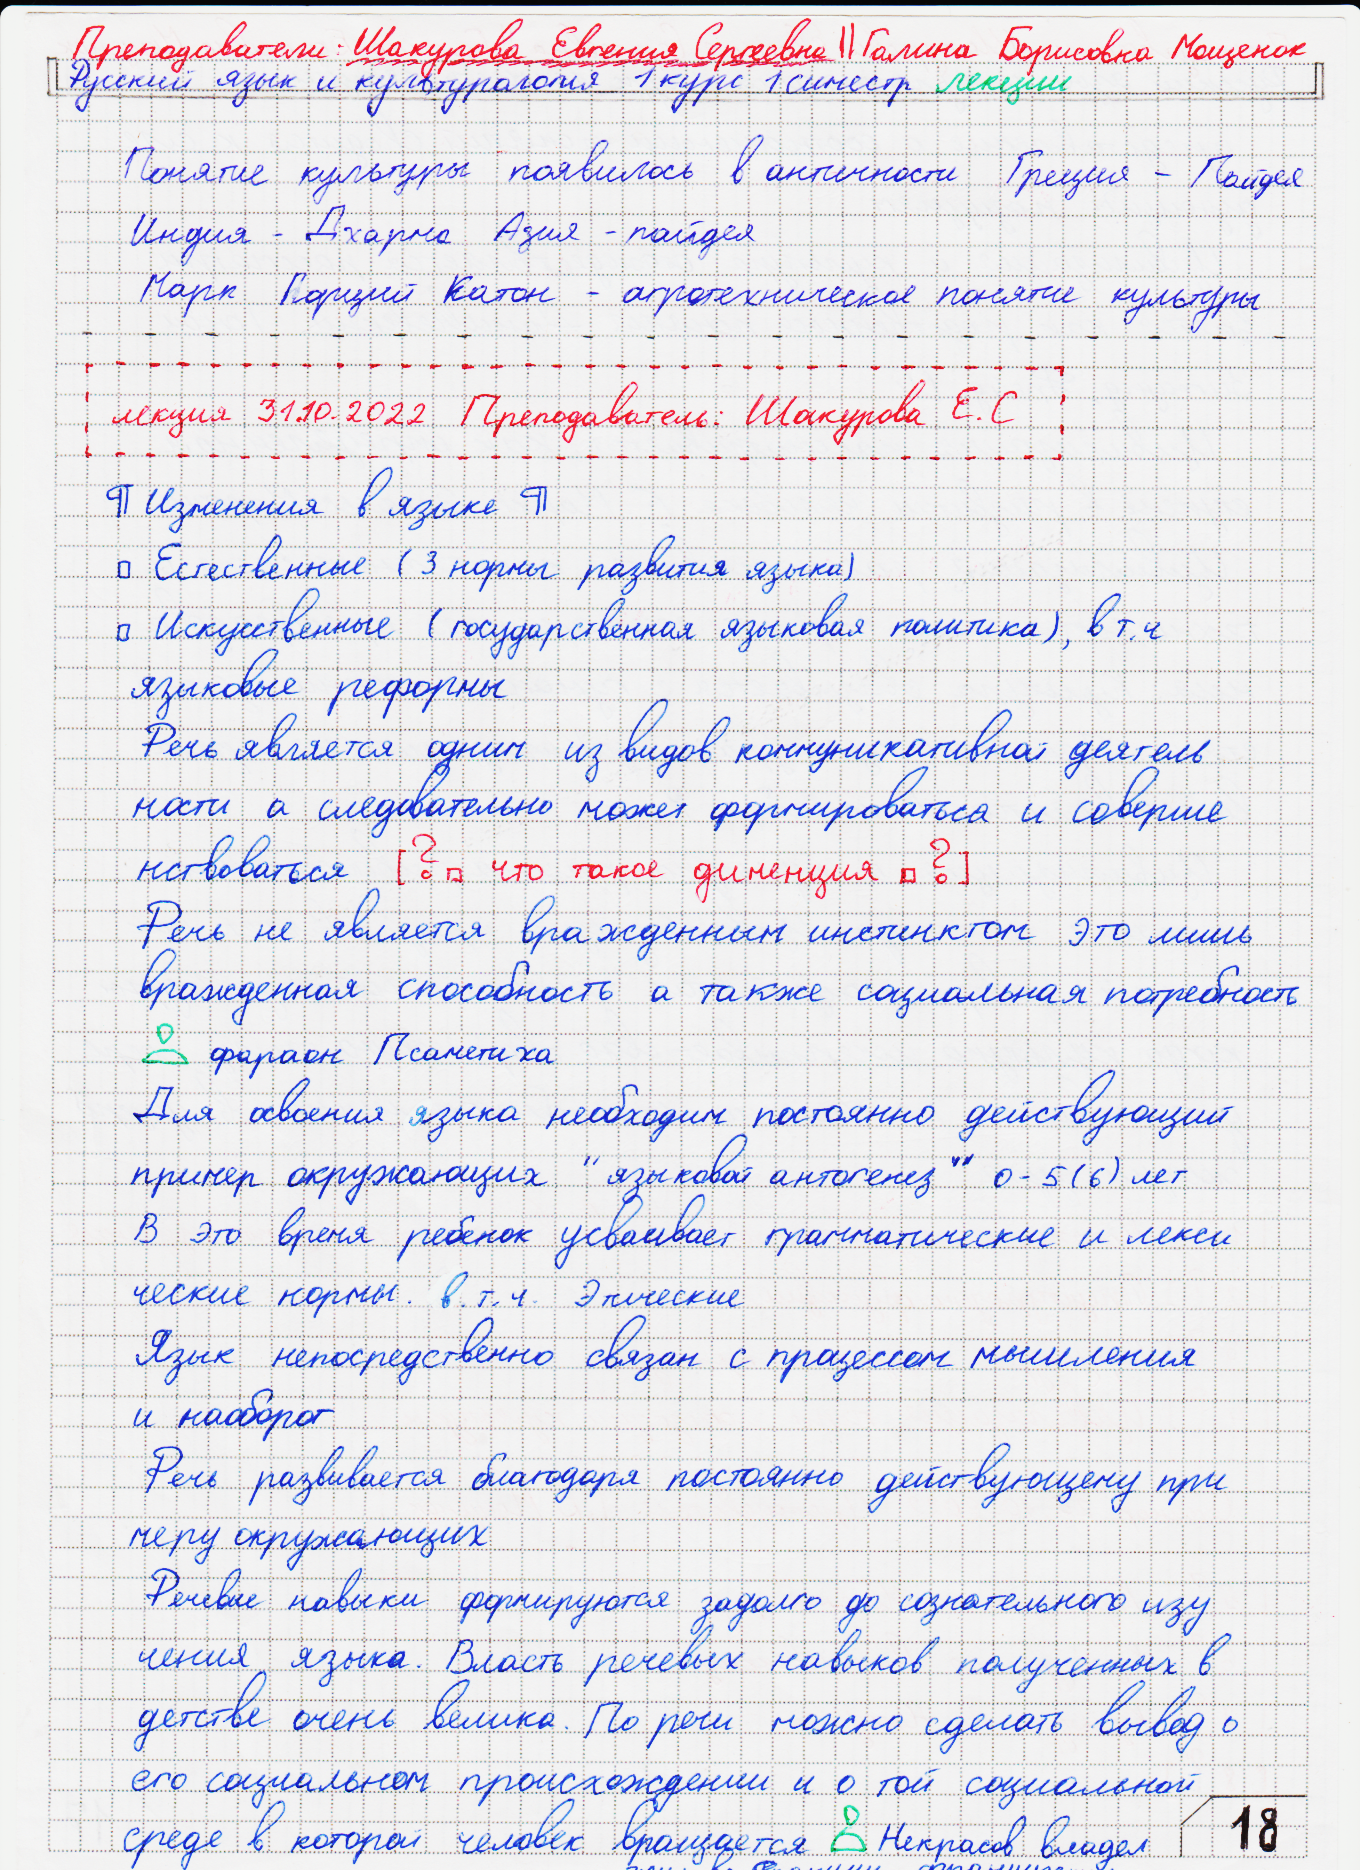 Преподаватели: Шакурова Евгения Сергеевна || Галина Борисовна Мощенок
Русский язык и культурология 1 курс 1 симестр лекции
Понятие культуры появилось в античности Греция - Пайдея
Индия - Дхарма Азия - пайдея
Марк Порций Катон - агротехническое понятие культуры
лекция 31.10.2022 Преподаватель: Шакурова Е.С
¶ Изменения в языке ¶
□ Естественные (3 нормы развития языка)
□ Искусственные (государственная языковая политика), в т.ч
языковые реформы
Речь является одним из видов коммуникативной деятель
ности а следовательно может формироваться и соверше
нствоваться [? □ что такое дименция □ ?]
Речь не является вражденным инстинктом это лишь
вражденная способность а также социальная потребность
фараон Псаметиха
Для освоения языка необходим постоянно действующий
пример окружающих "языковой антогенез" 0-5(6) лет
В это время ребенок усваивает грамматические и лекси
ческие нормы. в.т.ч. Этические
Язык непосредственно связан с процессом мышления
и наоборот
Речь развивается благодаря постоянно действующему при
меру окружающих
Речевые навыки формируются задолго до сознательного изу
чения языка. Власть речевых навыков полученных в
детстве очень велика. По речи можно сделать вывод о
его социальном происхождении и о той социальной
среде в которой человек вращается Некрасов владел
18